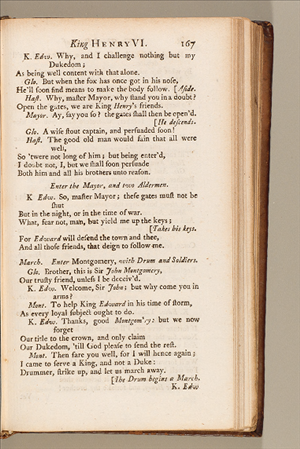 King HENRY VI. 167
K. Edw. Why, and I challenge nothing but my
Dukedom;
As being well content with that alone.
Glo. But when the fox has once got in his nose,
He'll soon find means to make the body follow. [Aside.
Hast. Why, master Mayor, why stand you in a doubt?
Open the gates, we are King Henry's friends.
Mayor. Ay, say you so? the gates shall then be open'd.
[He descends.
Glo. A wise stout captain, and persuaded soon!
Hast. The good old man would fain that all were
well,
So 'twere not long of him; but being enter'd,
I doubt not, I, but we shall soon persuade
Both him and all his brothers unto reason.
Enter the Mayor, and two Aldermen.
K Edw. So, master Mayor; these gates must not be
shut
But in the night, or in the time of war.
What, fear not, man, but yield me up the keys;
[Takes his keys.
For Edward will defend the town and thee,
And all those friends, that deign to follow me.
March. Enter Montgomery, with Drum and Soldiers.
Glo. Brother, this is Sir John Montgomery,
Our trusty friend, unless I be deceiv'd.
K. Edw. Welcome, Sir John; but why come you in
arms?
Mont. To help King Edward in his time of storm,
As every loyal subject ought to do.
K. Edw. Thanks, good Montgom'ry: but we now
forget
Our title to the crown, and only claim
Our Dukedom, 'till God please to send the rest.
Mont. Then fare you well, for I will hence again;
I came to serve a King, and not a Duke:
Drummer, strike up, and let us march away.
[The Drum begins a March.
K. Edw